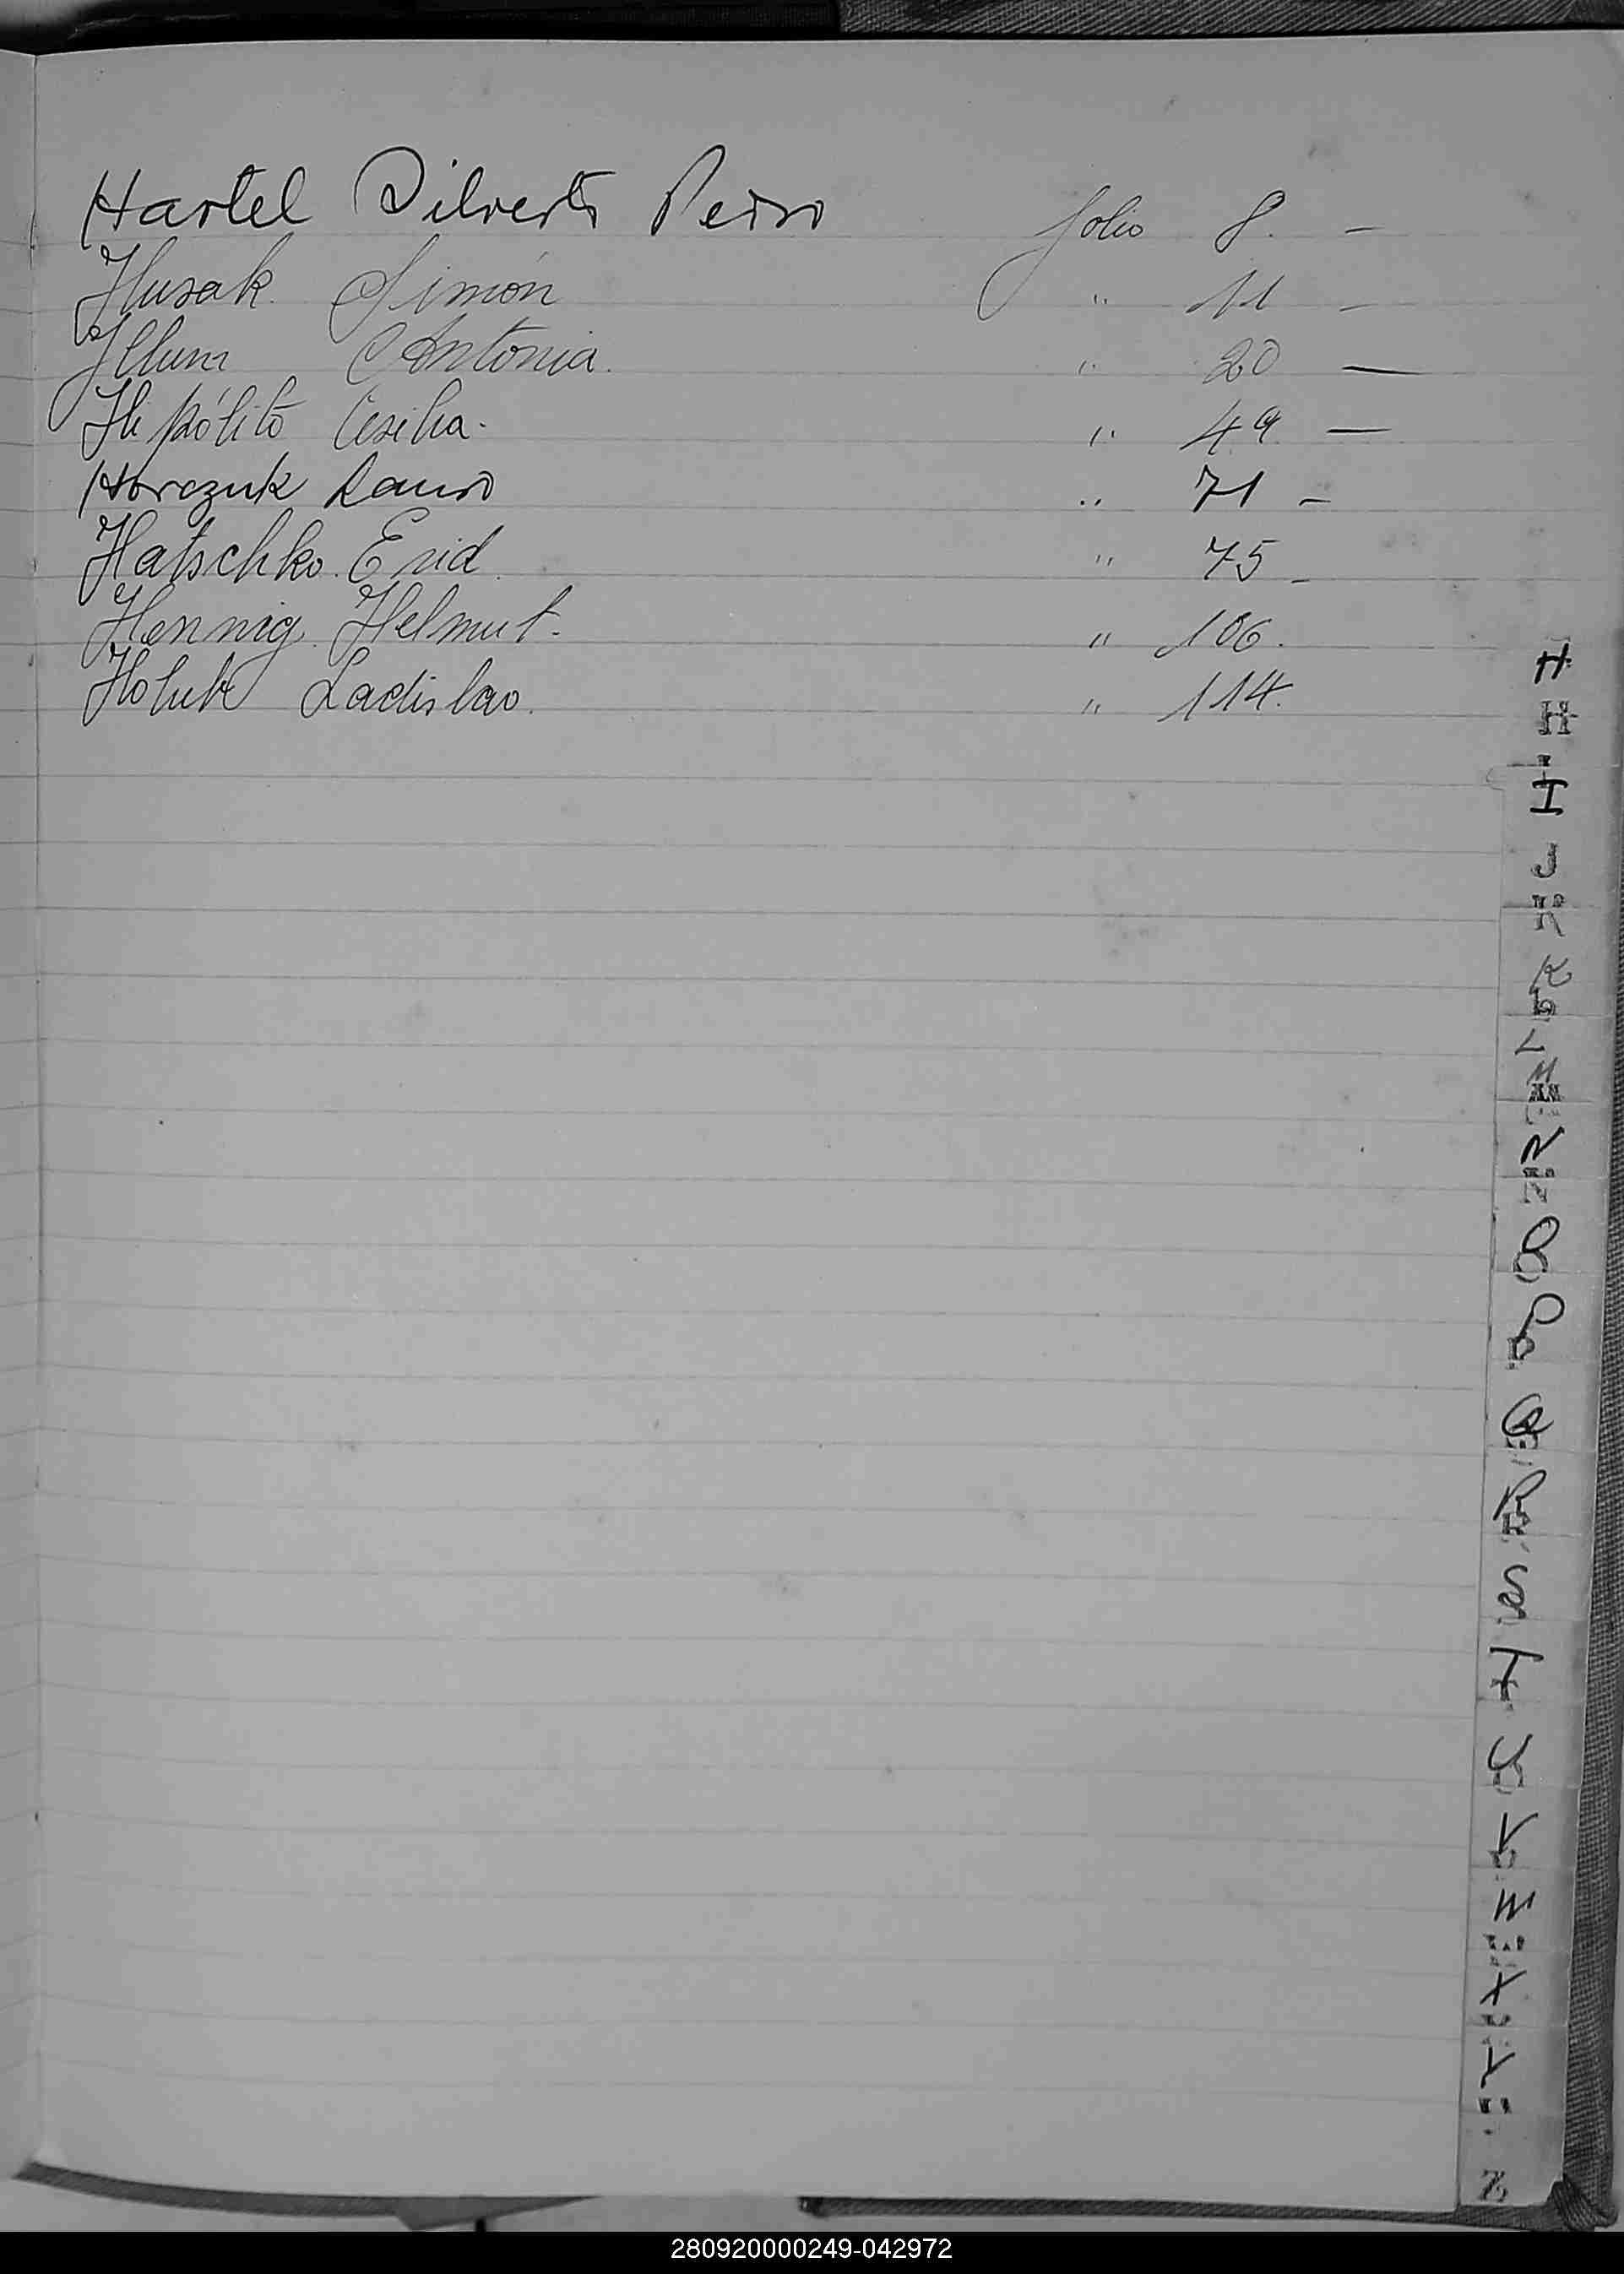 Hartel Silverto Pedro folio 8. —
Husak Simón " 11 —
Hlum Antonia. " 20 —
Hipólito Cesilia. " 49 —
Horczuk Lauro " 71 —
Hatschko Erid. " 75 —
Hennig Helmut. " 106.
Holuk Ladislao. " 114.
H
H
I
J
K
K
L
M
N
N
O
P
Q
R
S
T
U
V
W
X
Y
Z
280920000249-042972